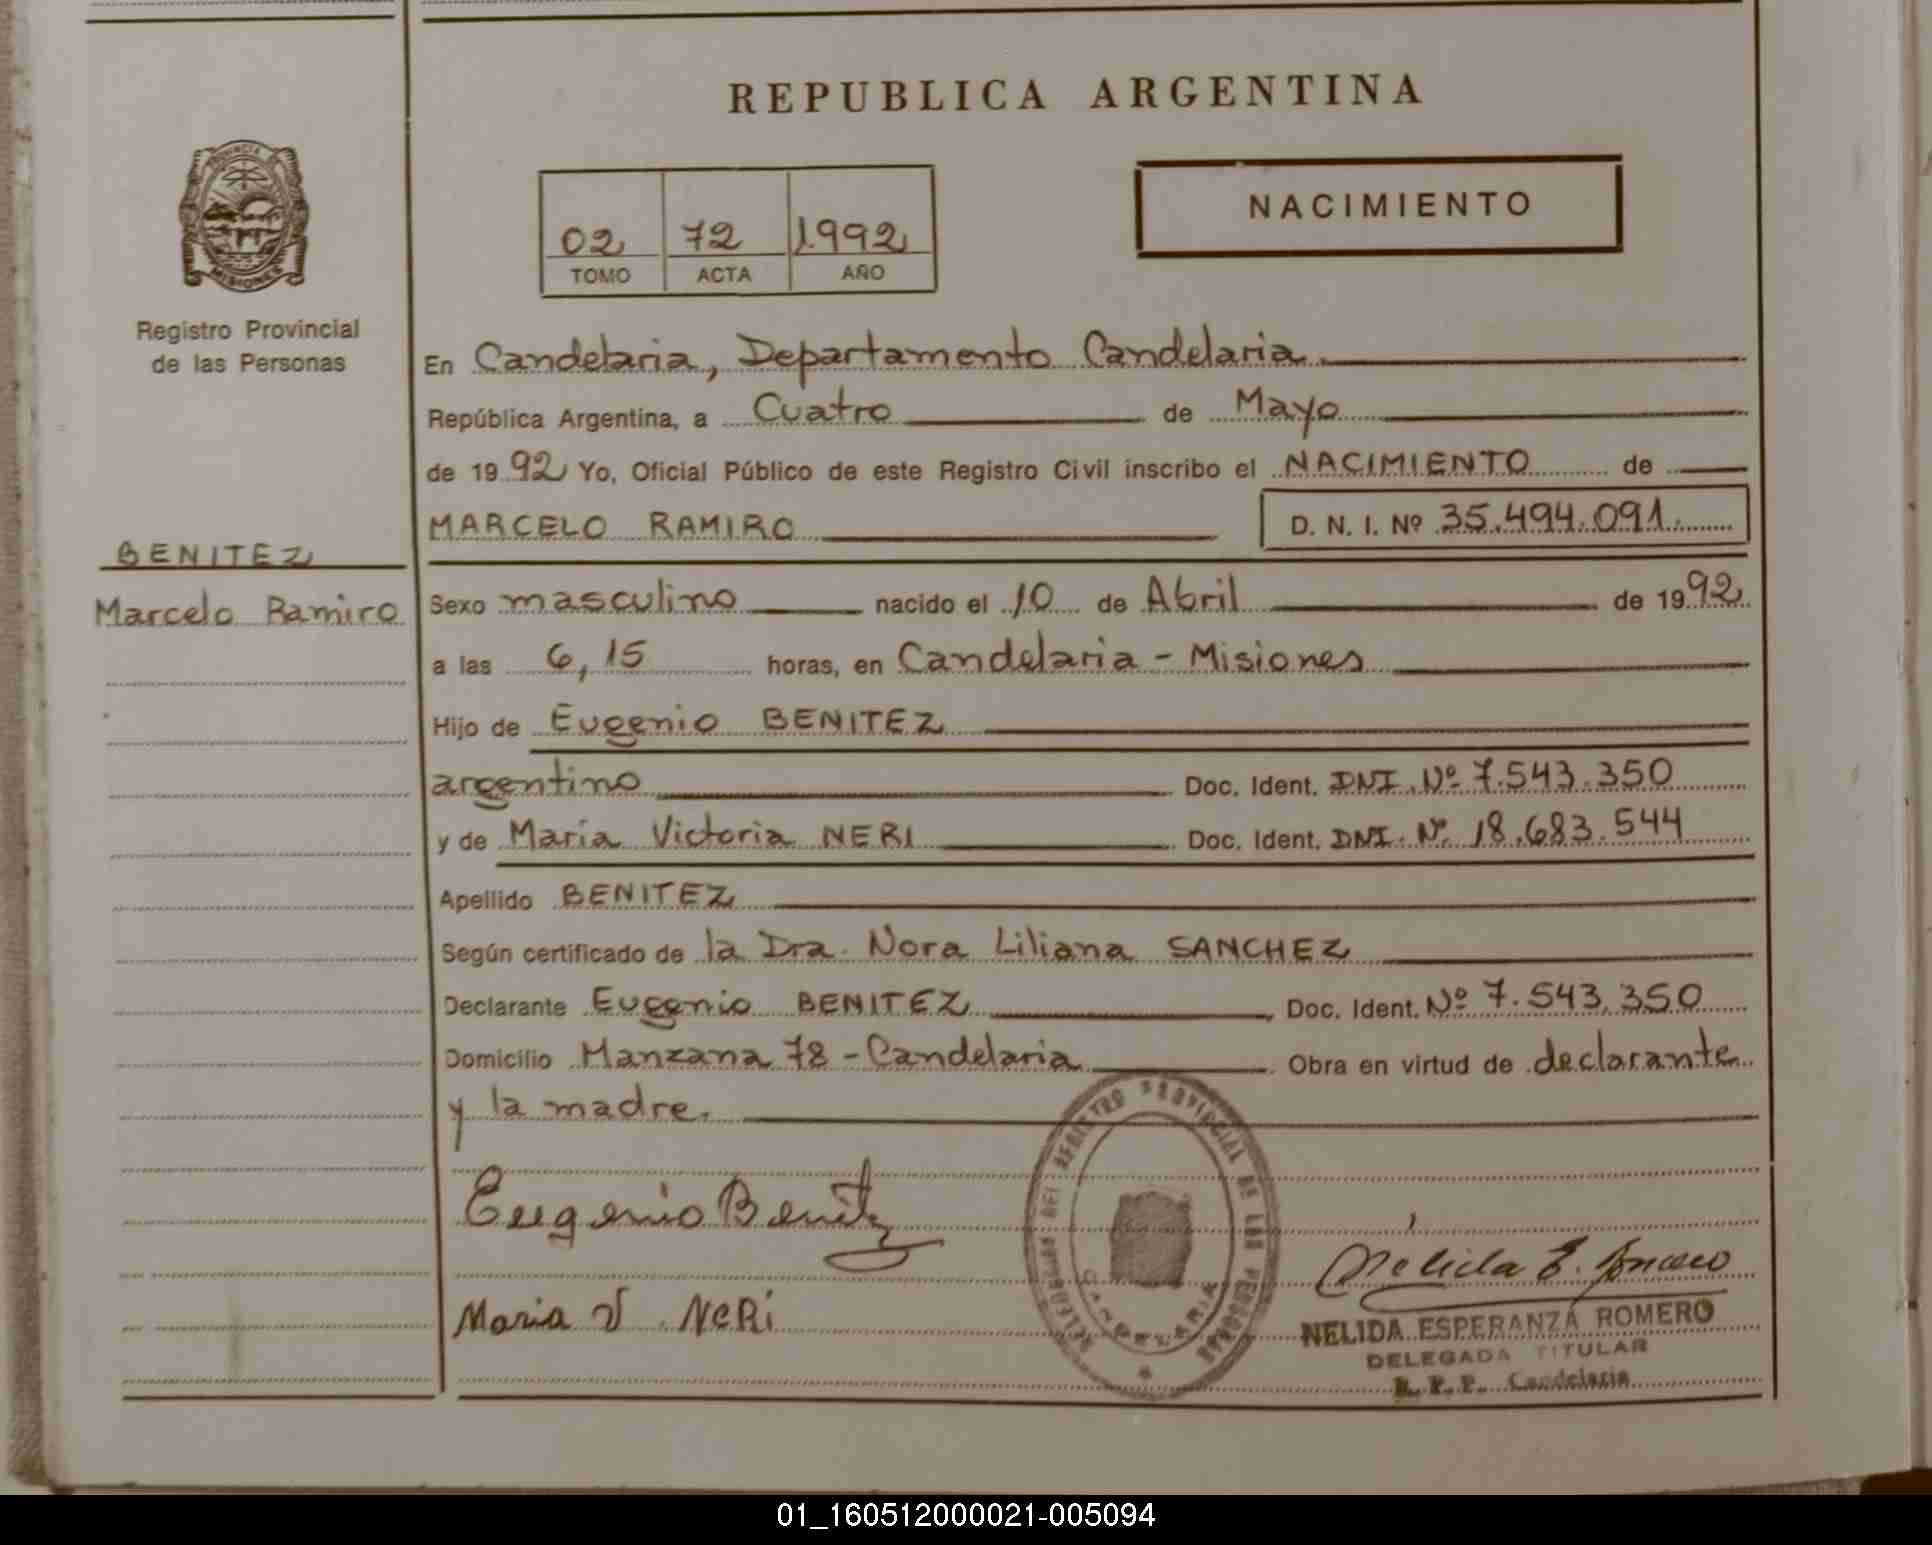 REPUBLICA ARGENTINA
PROVINCIA DE
MISIONES
Registro Provincial
de las Personas
02 72 1992
TOMO ACTA AÑO
NACIMIENTO
En Candelaria, Departamento Candelaria
República Argentina, a Cuatro de Mayo
de 1992 Yo, Oficial Público de este Registro Civil inscribo el NACIMIENTO de
MARCELO RAMIRO D. N. I. Nº 35.494.091
BENITEZ
Marcelo Ramiro
Sexo masculino nacido el 10 de Abril de 1992
a las 6,15 horas, en Candelaria - Misiones
Hijo de Eugenio BENITEZ
argentino Doc. Ident. DNI. Nº 7.543.350
y de Maria Victoria NERI Doc. Ident. DNI. Nº 18.683.544
Apellido BENITEZ
Según certificado de la Dra. Nora Liliana SANCHEZ
Declarante Eugenio BENITEZ, Doc. Ident. Nº 7.543.350
Domicilio Manzana 78 - Candelaria. Obra en virtud de declarante
y la madre.
Eugenio Benitz
Maria V. NERi
REGISTRO PROVINCIAL DE LAS PERSONAS
CANDELARIA
Nelida E. Romero
NELIDA ESPERANZA ROMERO
DELEGADA TITULAR
R. P. P. Candelaria
01_160512000021-005094